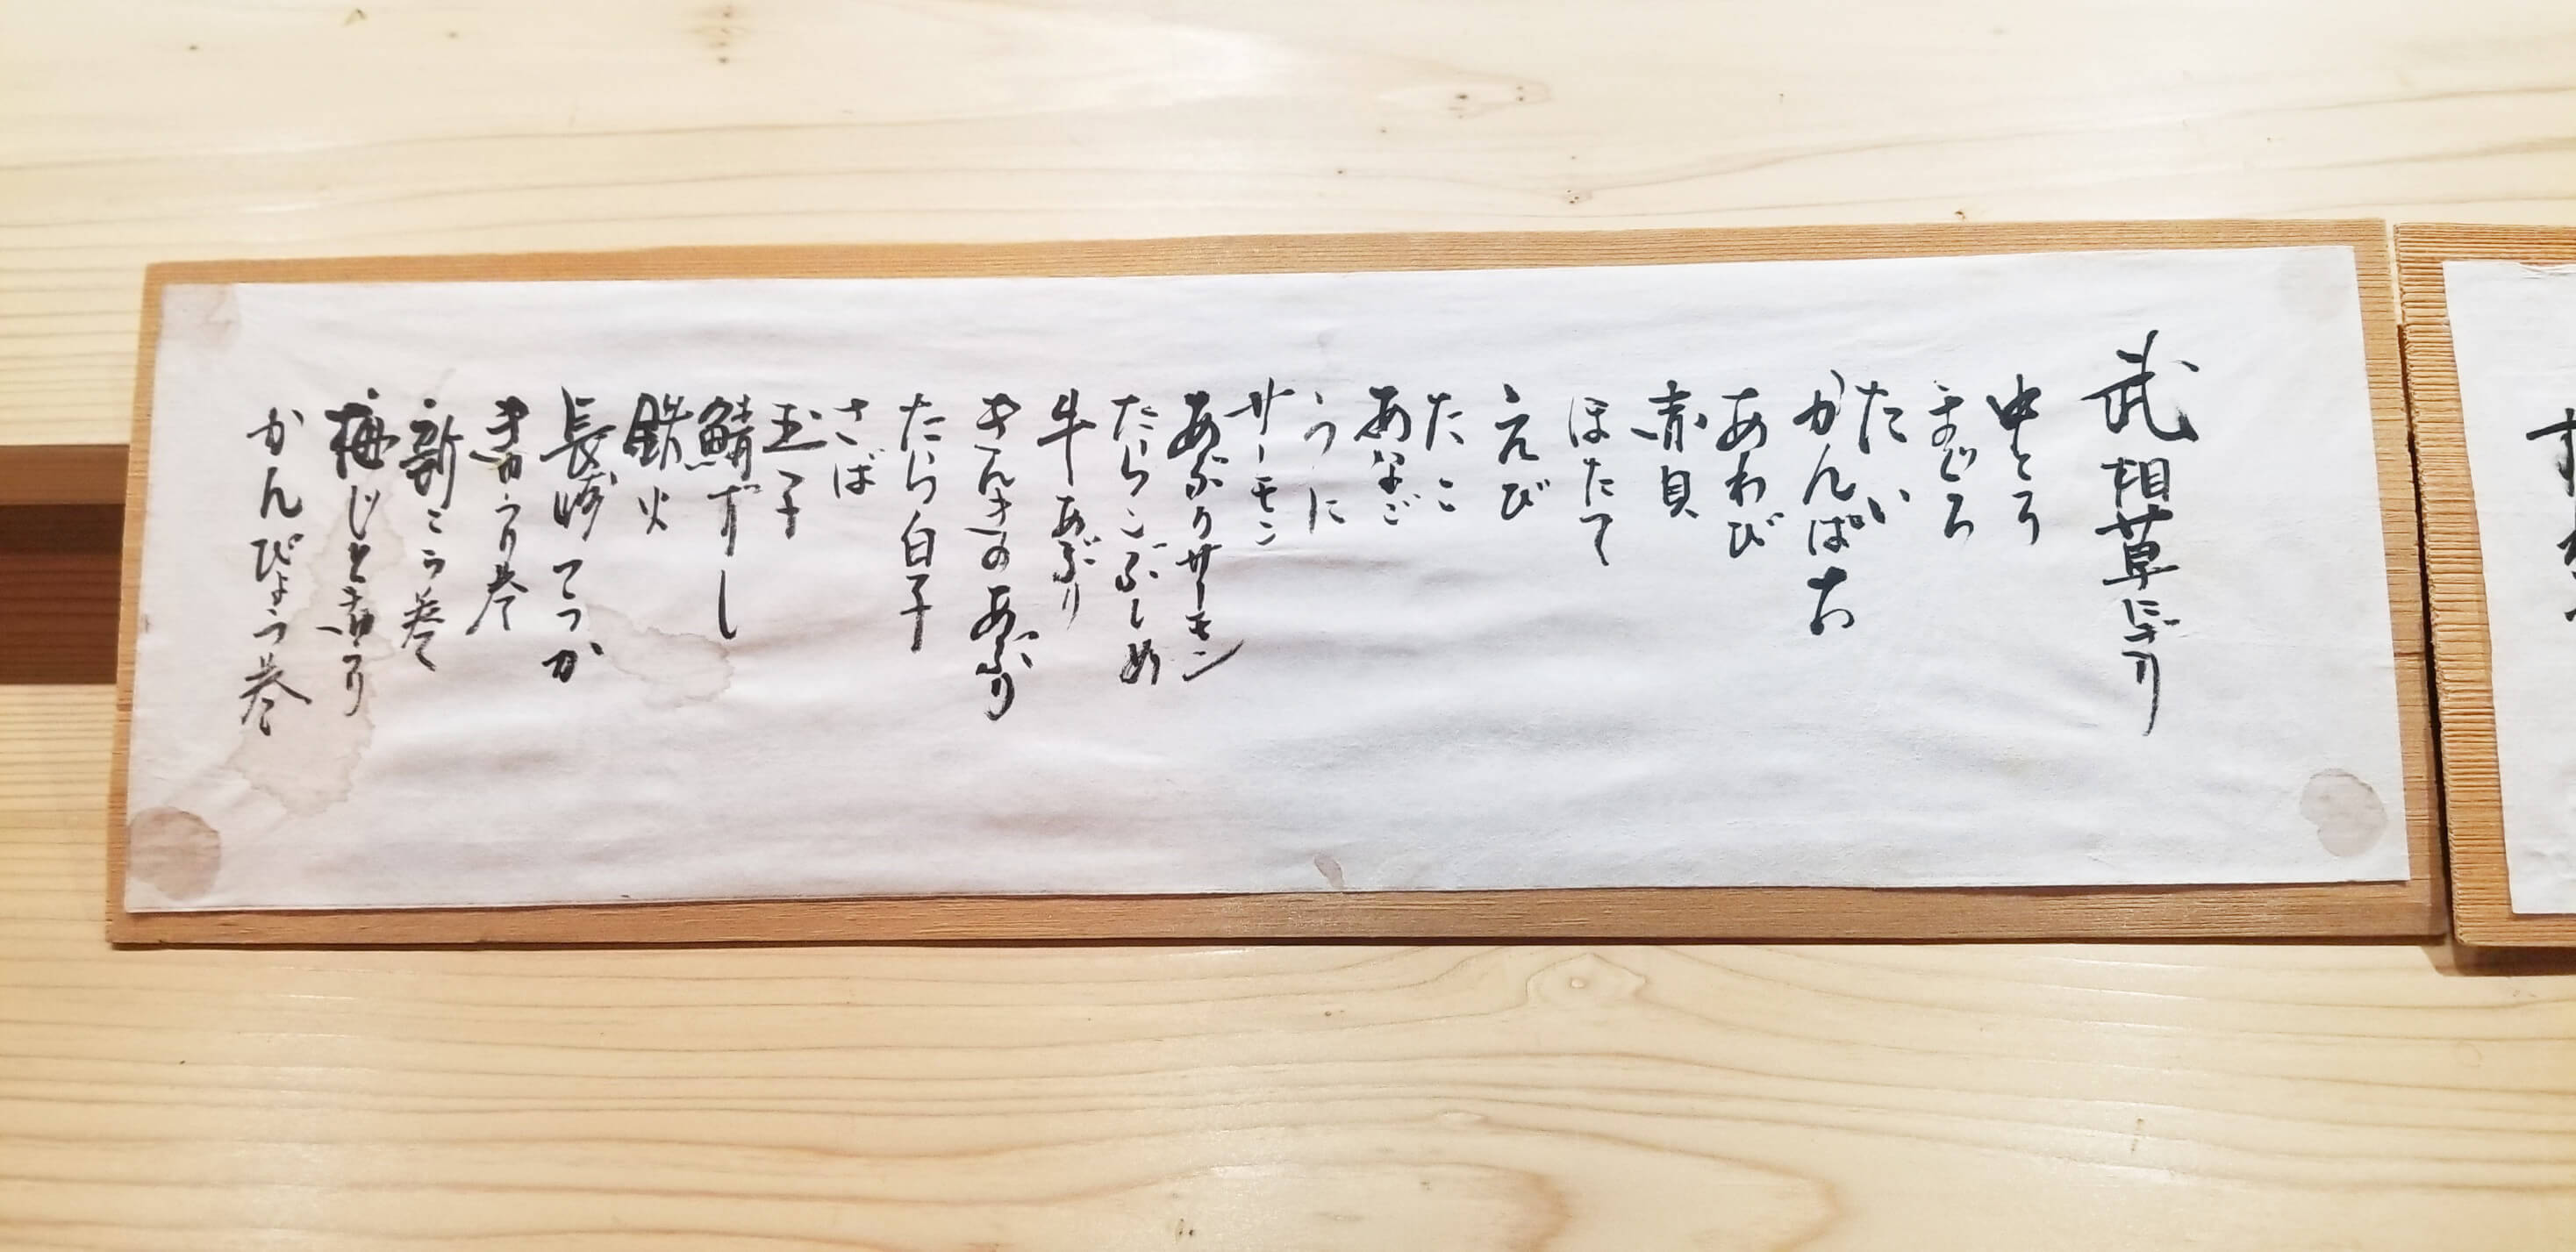 武相草にぎり
中とろ
まぐろ
たい
かんぱち
あわび
赤貝
ほたて
えび
たこ
あなご
うに
サーモン
あぶりサーモン
たらこぶしめ
牛あぶり
きんきのあぶり
たら白子
さば
玉子
鯖ずし
鉄火
長崎てっか
きうり巻
新こう巻
梅じときうり
かんぴょう巻